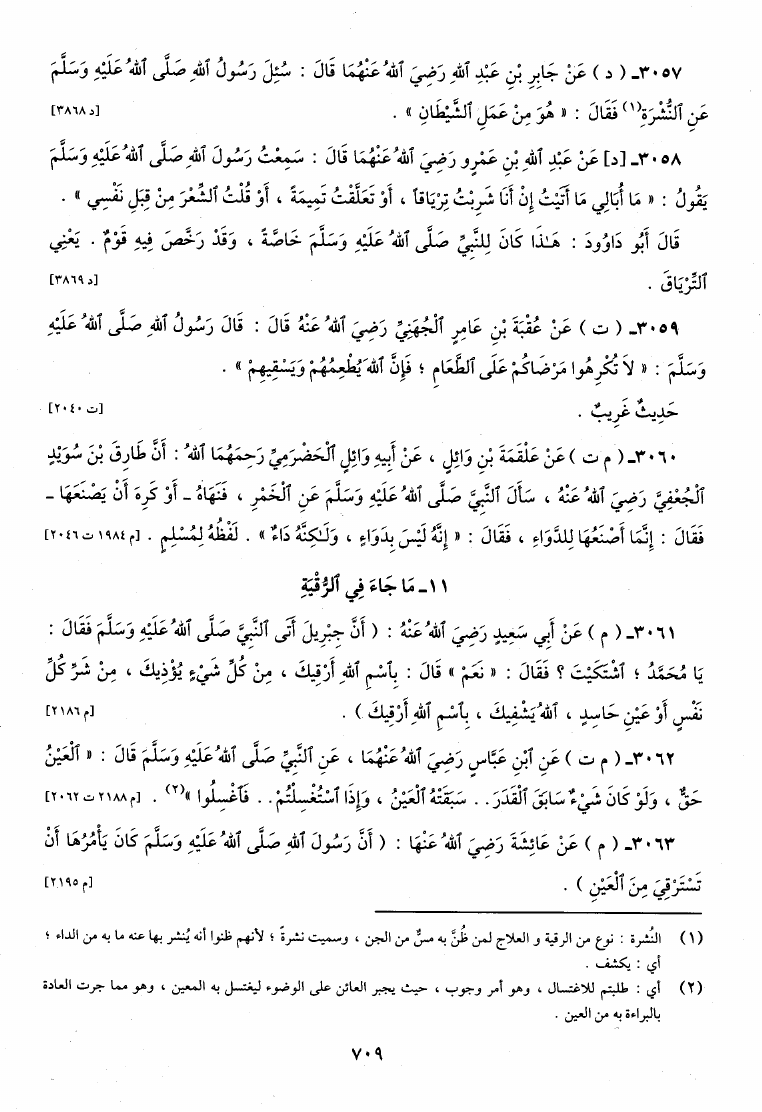 ٣٠٥٧ـ ( د ) عَنْ جَابِرِ بْنِ عَبْدِ ٱللهِ رَضِيَ ٱللهُ عَنْهُمَا قَالَ : سُئِلَ رَسُولُ ٱللهِ صَلَّى ٱللهُ عَلَيْهِ وَسَلَّمَ
عَنِ ٱلنُّشْرَةِ(١) فَقَالَ : « هُوَ مِنْ عَمَلِ ٱلشَّيْطَانِ » . [د ٣٨٦٨]
٣٠٥٨ـ [د] عَنْ عَبْدِ ٱللهِ بْنِ عَمْرٍو رَضِيَ ٱللهُ عَنْهُمَا قَالَ : سَمِعْتُ رَسُولَ ٱللهِ صَلَّى ٱللهُ عَلَيْهِ وَسَلَّمَ
يَقُولُ : « مَا أُبَالِي مَا أَتَيْتُ إِنْ أَنَا شَرِبْتُ تِرْيَاقاً ، أَوْ تَعَلَّقْتُ تَمِيمَةً ، أَوْ قُلْتُ ٱلشِّعْرَ مِنْ قِبَلِ نَفْسِي » .
قَالَ أَبُو دَاوُودَ : هَـٰذَا كَانَ لِلنَّبِيِّ صَلَّى ٱللهُ عَلَيْهِ وَسَلَّمَ خَاصَّةً ، وَقَدْ رَخَّصَ فِيهِ قَوْمٌ . يَعْنِي
ٱلتِّرْيَاقَ . [د ٣٨٦٩]
٣٠٥٩ـ ( ت ) عَنْ عُقْبَةَ بْنِ عَامِرٍ ٱلْجُهَنِيِّ رَضِيَ ٱللهُ عَنْهُ قَالَ : قَالَ رَسُولُ ٱللهِ صَلَّى ٱللهُ عَلَيْهِ
وَسَلَّمَ : « لاَ تُكْرِهُوا مَرْضَاكُمْ عَلَى ٱلطَّعَامِ ؛ فَإِنَّ ٱللهَ يُطْعِمُهُمْ وَيَسْقِيهِمْ » .
حَدِيثٌ غَرِيبٌ . [ت ٢٠٤٠]
٣٠٦٠ـ ( م ت ) عَنْ عَلْقَمَةَ بْنِ وَائِلٍ ، عَنْ أَبِيهِ وَائِلٍ ٱلْحَضْرَمِيِّ رَحِمَهُمَا ٱللهُ : أَنَّ طَارِقَ بْنَ سُوَيْدٍ
ٱلْجُعْفِيَّ رَضِيَ ٱللهُ عَنْهُ ، سَأَلَ ٱلنَّبِيَّ صَلَّى ٱللهُ عَلَيْهِ وَسَلَّمَ عَنِ ٱلْخَمْرِ ، فَنَهَاهُ ـ أَوْ كَرِهَ أَنْ يَصْنَعَهَا ـ
فَقَالَ : إِنَّمَا أَصْنَعُهَا لِلدَّوَاءِ ، فَقَالَ : « إِنَّهُ لَيْسَ بِدَوَاءٍ ، وَلَـٰكِنَّهُ دَاءٌ » . لَفْظُهُ لِمُسْلِمٍ . [م ١٩٨٤ ت ٢٠٤٦]
١١ـ مَا جَاءَ فِي ٱلرُّقْيَةِ
٣٠٦١ـ ( م ) عَنْ أَبِي سَعِيدٍ رَضِيَ ٱللهُ عَنْهُ : ( أَنَّ جِبْرِيلَ أَتَى ٱلنَّبِيَّ صَلَّى ٱللهُ عَلَيْهِ وَسَلَّمَ فَقَالَ :
يَا مُحَمَّدُ ؛ ٱشْتَكَيْتَ ؟ فَقَالَ : « نَعَمْ » قَالَ : بِٱسْمِ ٱللهِ أَرْقِيكَ ، مِنْ كُلِّ شَيْءٍ يُؤْذِيكَ ، مِنْ شَرِّ كُلِّ
نَفْسٍ أَوْ عَيْنِ حَاسِدٍ ، ٱللهُ يَشْفِيكَ ، بِٱسْمِ ٱللهِ أَرْقِيكَ ) . [م ٢١٨٦]
٣٠٦٢ـ ( م ت ) عَنِ ٱبْنِ عَبَّاسٍ رَضِيَ ٱللهُ عَنْهُمَا ، عَنِ ٱلنَّبِيِّ صَلَّى ٱللهُ عَلَيْهِ وَسَلَّمَ قَالَ : « ٱلْعَيْنُ
حَقٌّ ، وَلَوْ كَانَ شَيْءٌ سَابَقَ ٱلْقَدَرَ . . سَبَقَتْهُ ٱلْعَيْنُ ، وَإِذَا ٱسْتُغْسِلْتُمْ . . فَٱغْسِلُوا »(٢) . [م ٢١٨٨ ت ٢٠٦٢]
٣٠٦٣ـ ( م ) عَنْ عَائِشَةَ رَضِيَ ٱللهُ عَنْهَا : ( أَنَّ رَسُولَ ٱللهِ صَلَّى ٱللهُ عَلَيْهِ وَسَلَّمَ كَانَ يَأْمُرُهَا أَنْ
تَسْتَرْقِيَ مِنَ ٱلْعَيْنِ ) . [م ٢١٩٥]
(١) النُّشرة : نوع من الرقية و العلاج لمن ظُنَّ به مسٌّ من الجن ، وسميت نشرةً ؛ لأنهم ظنوا أنه يُنشر بها عنه ما به من الداء ؛
أي : يكشف .
(٢) أي : طلبتم للاغتسال ، وهو أمر وجوب ، حيث يجبر العائن على الوضوء ليغتسل به المعين ، وهو مما جرت العادة
بالبراءة به من العين .
٧٠٩